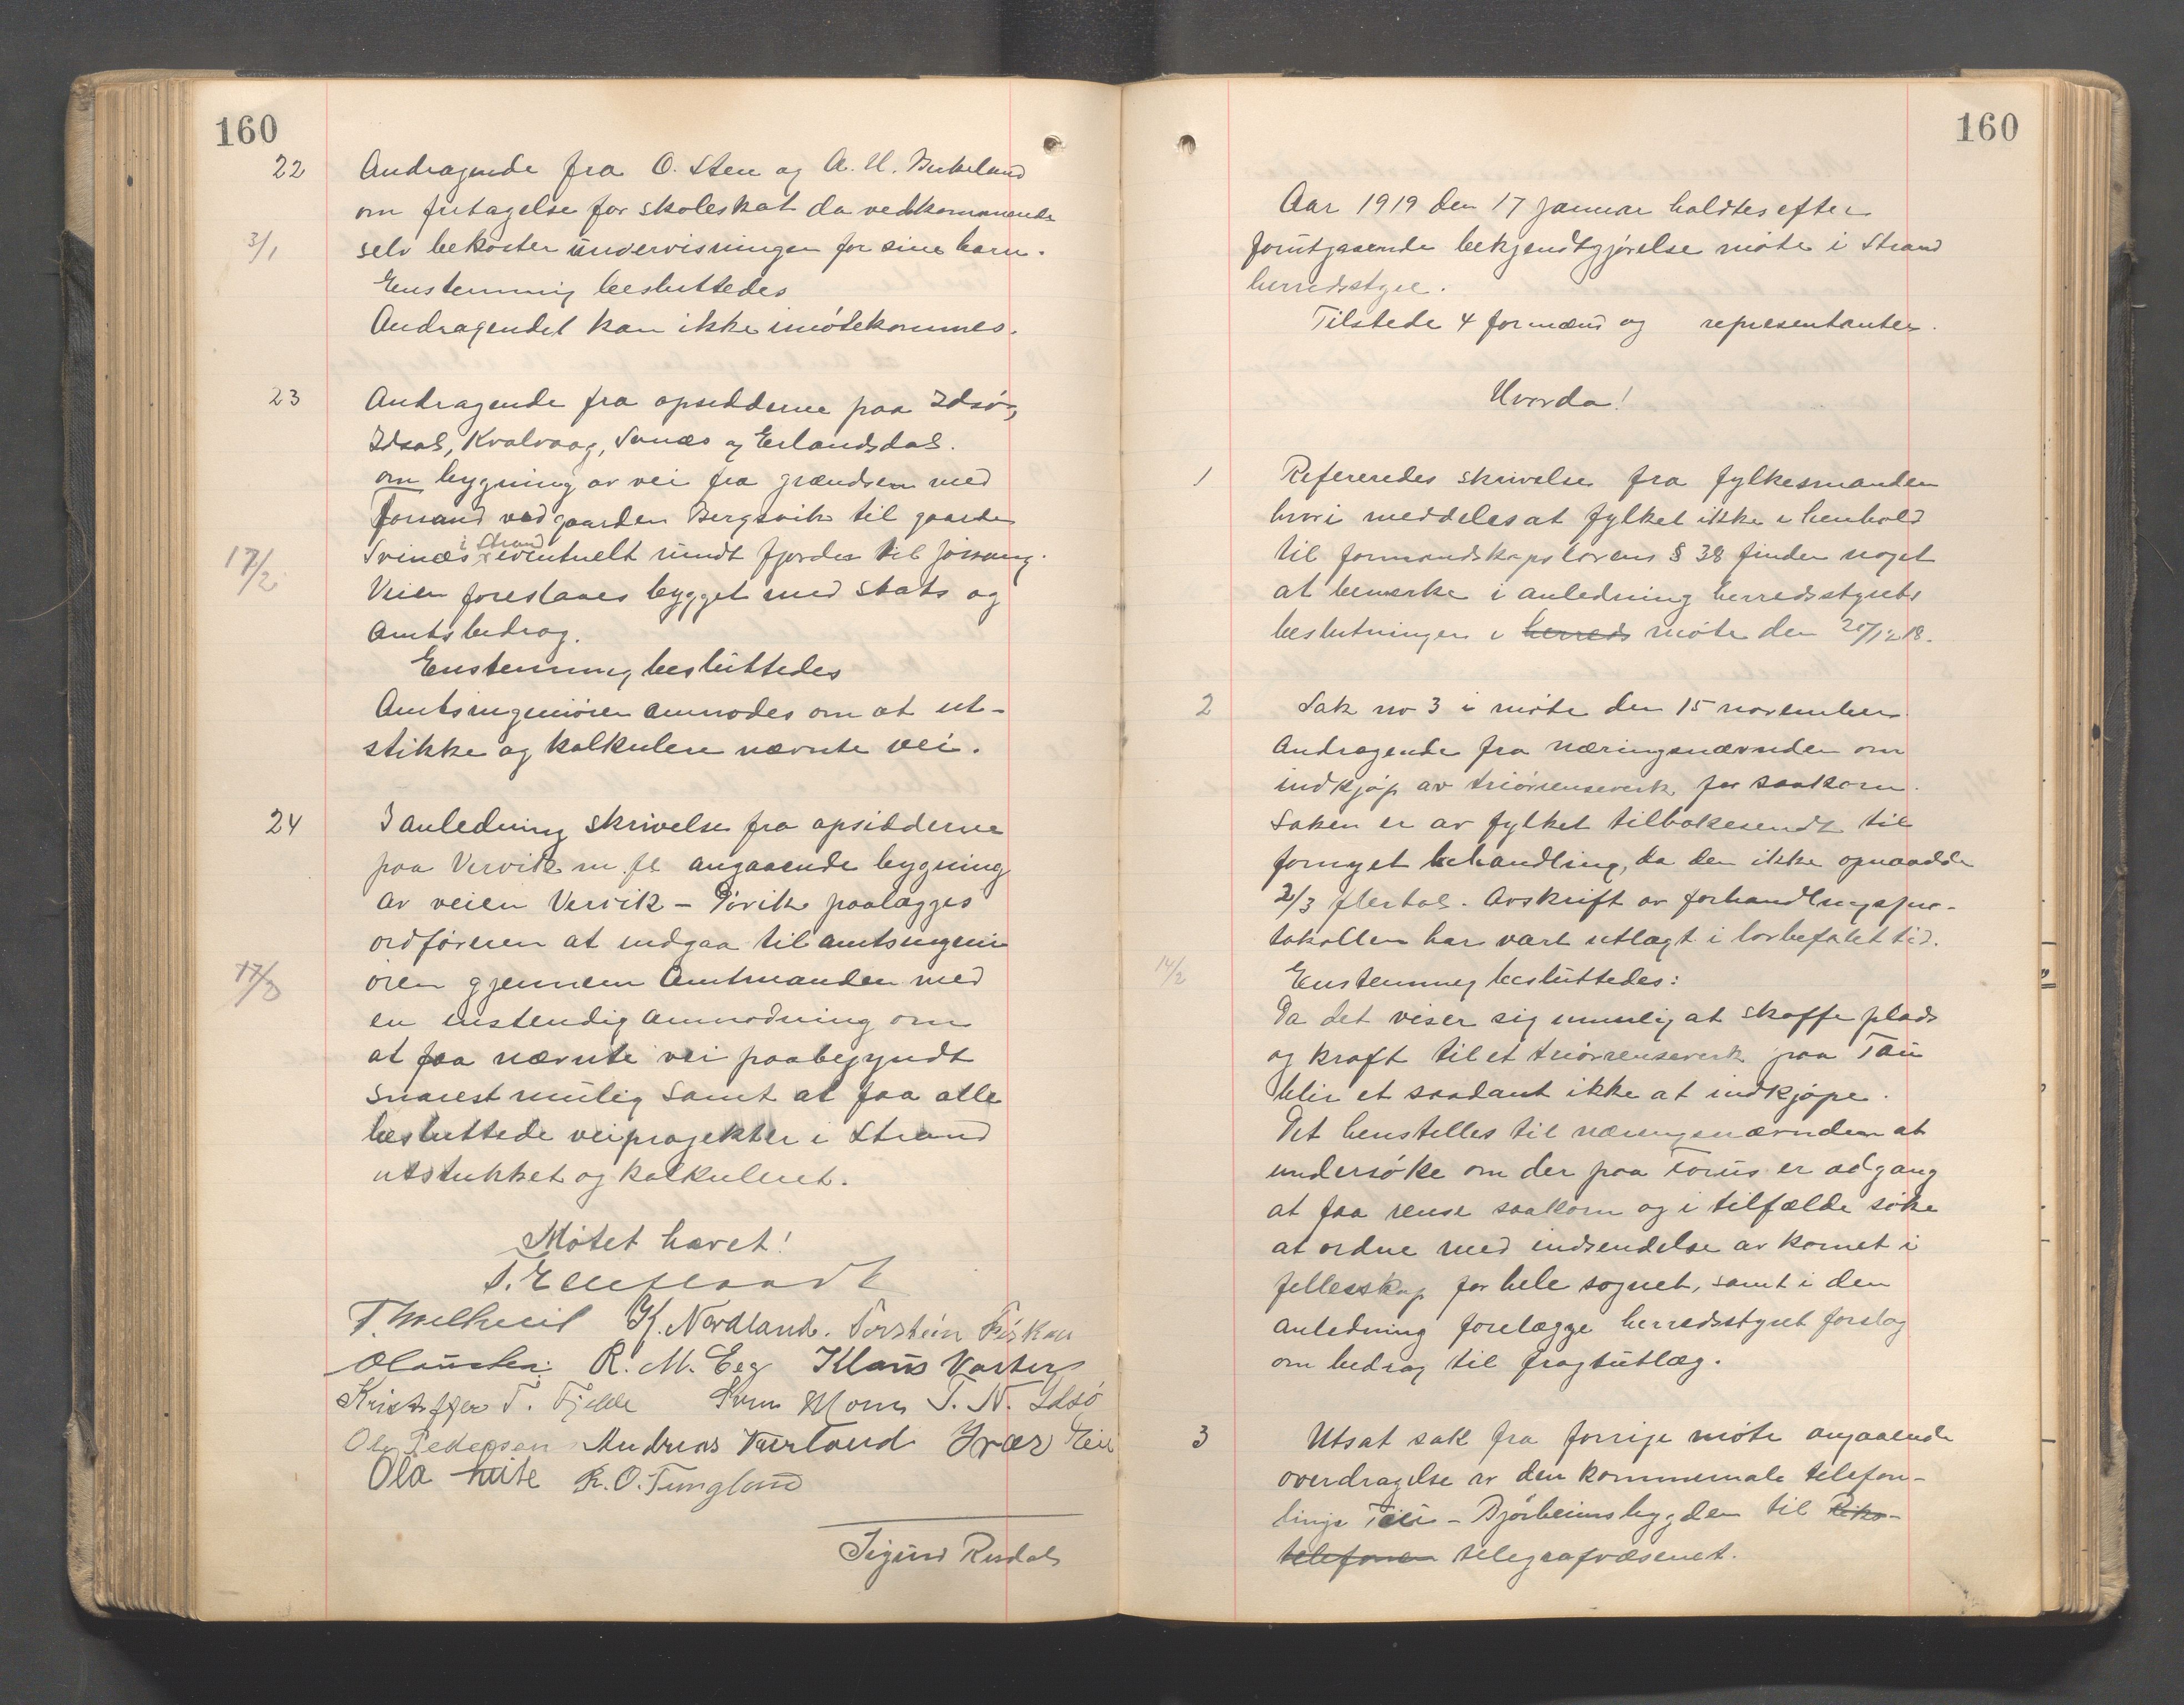 160
22 Andragende fra O. Sten og A. H. Birkeland
om fritagelse for skoleskat da vedkommende
3/1 selv bekoster undervisningen for sine barn.
Enstemmig besluttedes
Andragendet kan ikke imötekommes.
23 Andragende fra opsidderne paa Idsö,
Idsal, Kvalvaag, Svinæs og Erlandsdal.
om bygning av vei fra grændsen med
Forsand ved gaarden Bergsvik til gaarden
17/2 Svinæs i Strand eventuelt rundt fjorden til Jössang.
Veien foreslaaes bygget med Stats og
Amtsbidrag.
Enstemmig besluttedes
Amtsingeniören anmodes om at ut-
stikke og kalkulere nævnte vei.
24 I anledning skrivelse fra opsidderne
paa Vervik m. fl. angaaende bygning
av veien Vervik – Pövik paalægges
ordföreren at indgaa til amtsingeni
17/3 ören gjennem Amtmanden med
en instendig anmodning om
at faa nævnte vei paabegyndt
snarest mulig samt at faa alle
besluttede veiprosjekter i Strand
utstukket og kalkuleret.
Mötet hævet!
K. Nordland. Torstein Fiskaa
R. M. Eeg Klaus Vastveg
Kristoffer T. Fjelde Sven T. N. Idsö
Ole Pedersen Andreas Ivar
Ola R. O. Tungland
Sigurd Risdal
160
Aar 1919 den 17 januar holdtes efter
forutgaaende bekjendtgjörelse möte i Strand
herredsstyre.
Tilstede 4 formænd og representanter.
Hvorda!
1 Refereredes skrivelse fra fylkesmanden
hvori meddeles at fylket ikke i henhold
til formandskapslovens § 38 finder noget
at bemerke i anledning herredsstyrets
beslutninger i herreds möte den 20/12 18.
2 Sak no 3 i möte den 15 november
Andragende fra næringsnævnden om
indkjöp av triörrenseverk for saakorn.
Saken er av fylket tilbakesendt til
fornyet behandling, da den ikke opnaadde
2/3 flertal. Avskrift av forhandlingspro-
tokollen har vært utlagt i lovbefalet tid.
14/2 Enstemmig besluttedes:
Da det viser sig umulig at skaffe plads
og kraft til et triörrenseverk paa Tau
blir et saadant ikke at indkjöpe.
Det henstilles til næringsnævnden at
undersöke om der paa Forus er adgang
at faa rense saakorn og i tilfælde söke
at ordne med indsendelse av kornet i
fellesskap for hele sognet, samt i den
anledning forelægge herredsstyret forslag
om bidrag til fragtutlæg.
3 Utsat sak fra forrige möte angaaende
overdragelse av den kommunale telefon-
linje Tau – Björheimsbygden til Riks-
telefonen telegrafvæsenet.